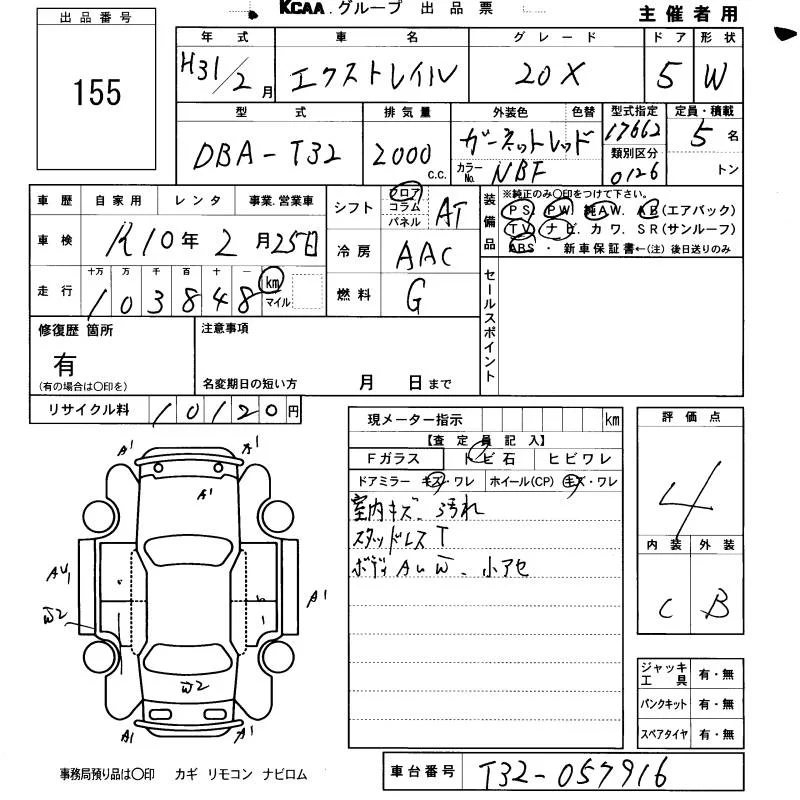 KCAA.グループ 出品票
主催者用
出品番号
155
年式 車名 グレード ドア 形状
H31/2月 エクストレイル 20X 5 W
型式 排気量 外装色 色替 型式指定 定員・積載
DBA-T32 2000c.c. ガーネットレッド 17662 5名
カラーNo. NBF 類別区分 0126 トン
車歴 自家用 レンタ 事業.営業車
車検 R10年2月25日
走行 十万 万 千 百 十 一
103848 km マイル
シフト フロア コラム パネル AT
冷房 AAC
燃料 G
装備品
※純正のみ○印をつけて下さい。
PS. PW. 純AW. AB(エアバック)
TV. ナビ. カワ. SR(サンルーフ)
ABS・新車保証書←(注)後日送りのみ
セールスポイント
修復歴 箇所
有
(有の場合は○印を)
注意事項
名変期日の短い方 月 日まで
リサイクル料 10120円
現メーター指示 km
【査定員記入】
Fガラス トビ石 ヒビワレ
ドアミラー キズ・ワレ ホイール(CP) キズ・ワレ
室内キズ、汚れ
スタッドレスT
ボディAUW、小アセ
評価点
4
内装 外装
C B
ジャッキ工具 有・無
パンクキット 有・無
スペアタイヤ 有・無
A1 A1
A1
AU1
W2
A1
W2
A1 A1
事務局預り品は○印 カギ リモコン ナビロム
車台番号 T32-057916